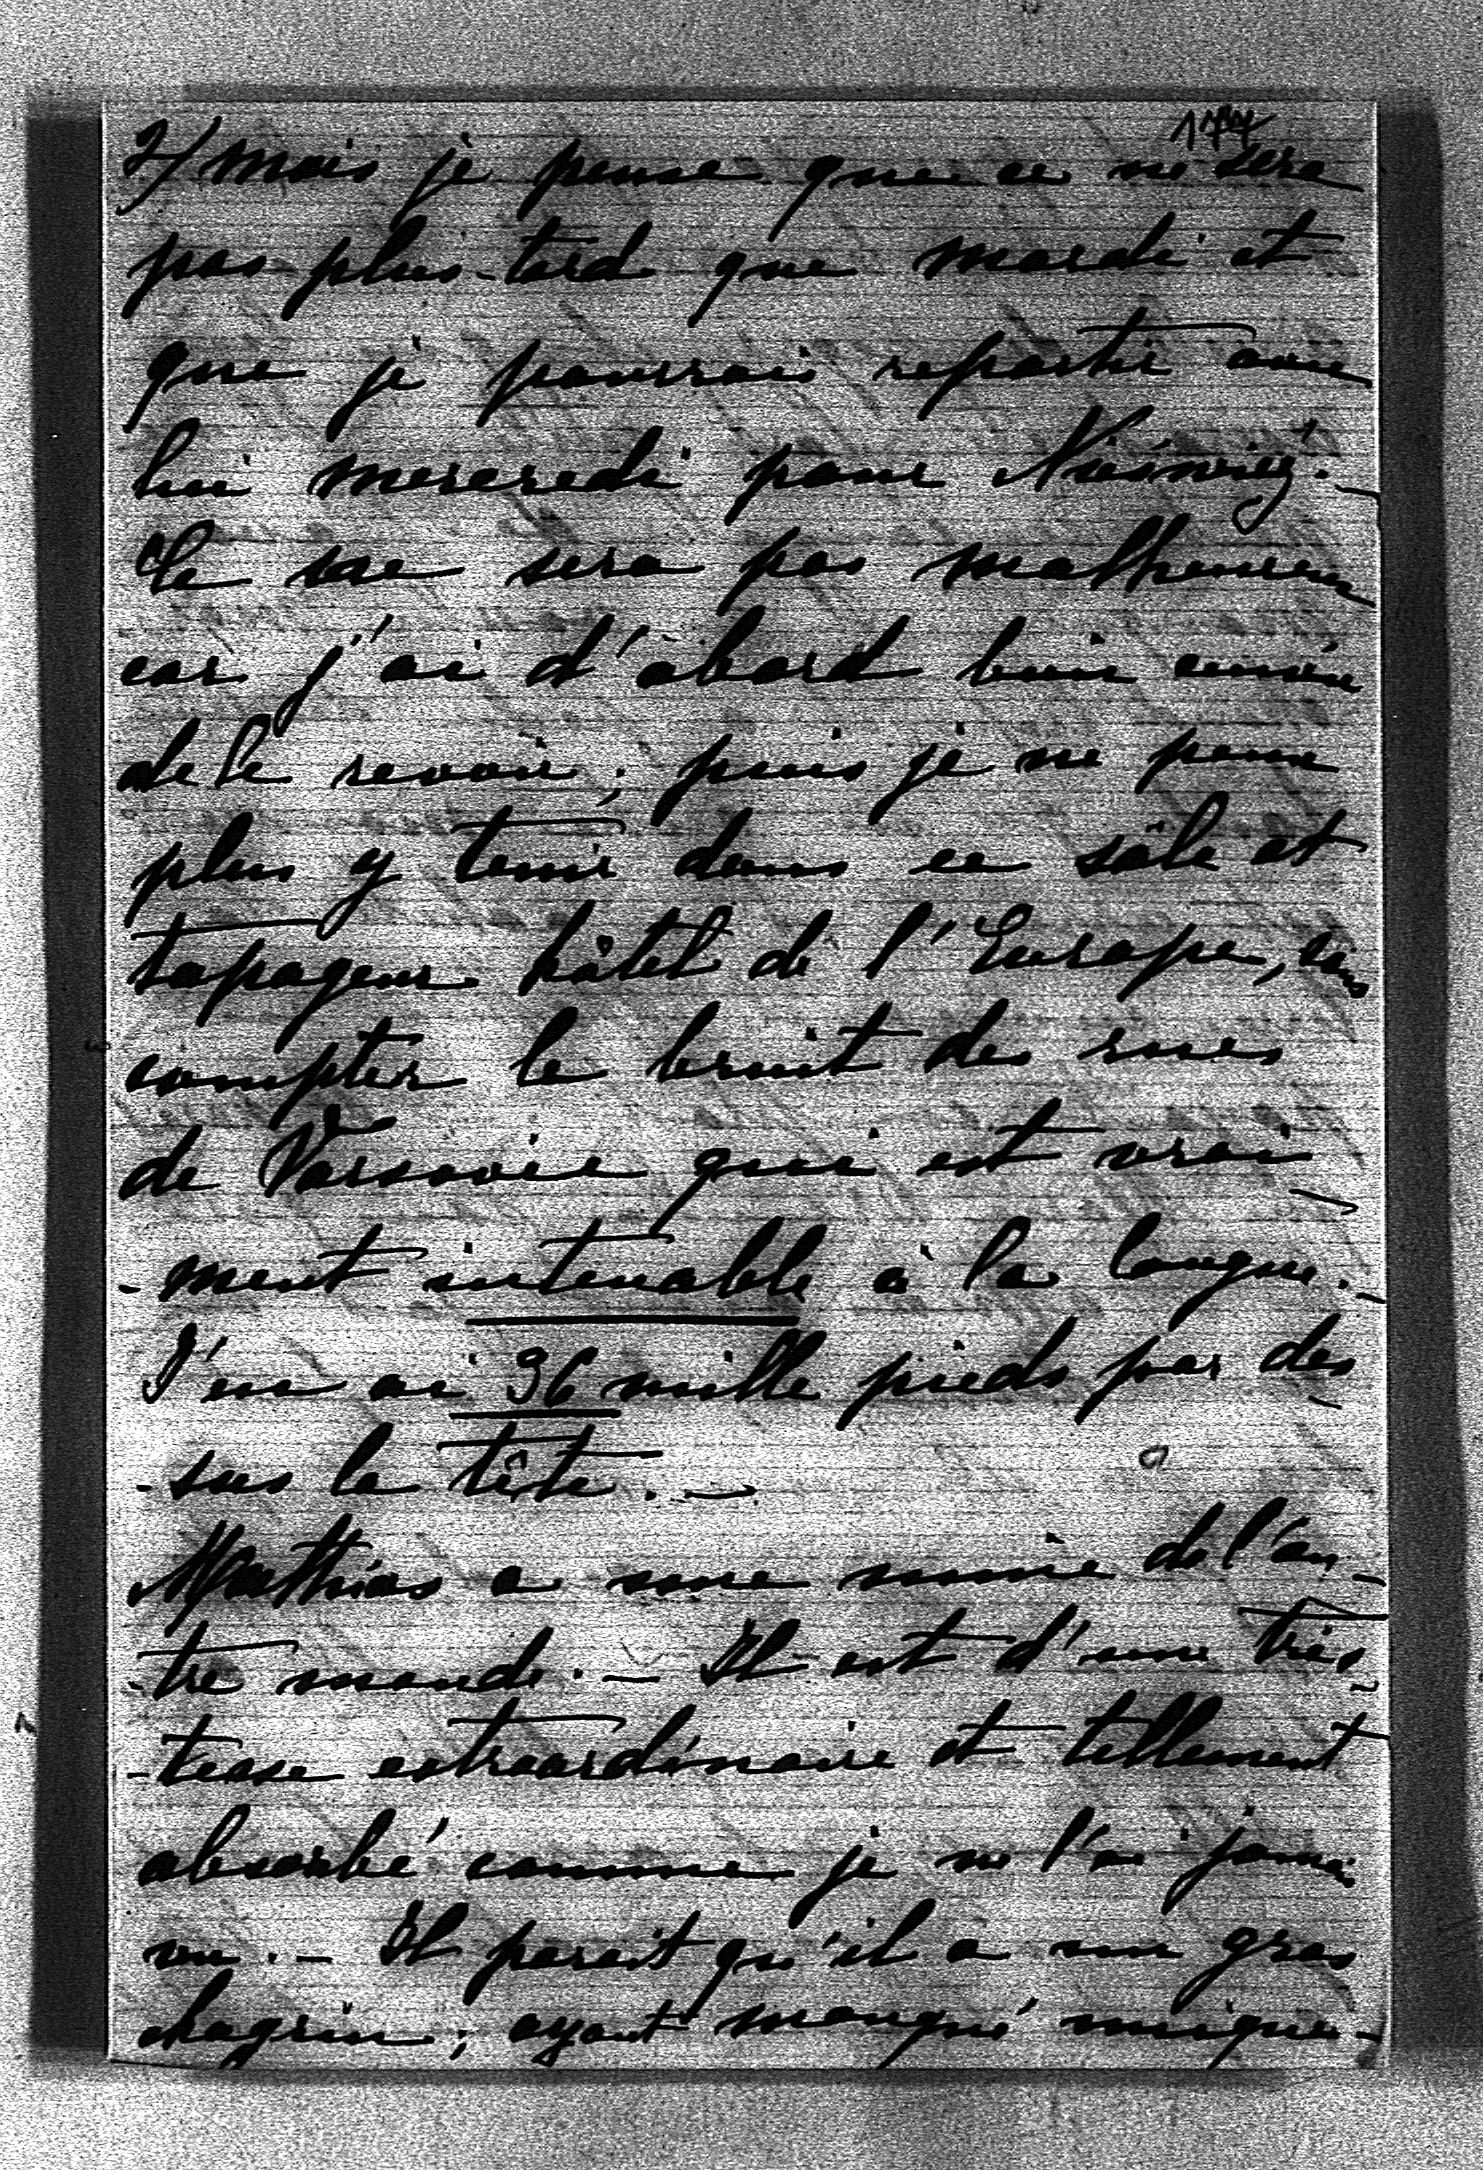 177
2/ mais je pense que ce ne sera
pas plus tard que mardi et
que je pourrais repartir avec
lui mercredi pour Nieśwież. —
Ce ne sera pas malheureux
car j'ai d'abord bien envie
de le revoir; puis je ne peux
plus y tenir dans ce sâle et
tapageur hôtel de l'Europe, sans
compter le bruit des rues
de Varsovie qui est vrai-
-ment intenable à la longue. —
J'en ai 36 mille pieds par des-
-sus la tête. —
Matthias a une mine de l'au-
-tre monde. — Il est d'une tris-
-tesse extraordinaire et tellement
absorbé comme je ne l'ai jamais
vu. — Il parait qu'il a un gros
chagrin; ayant manqué unique-